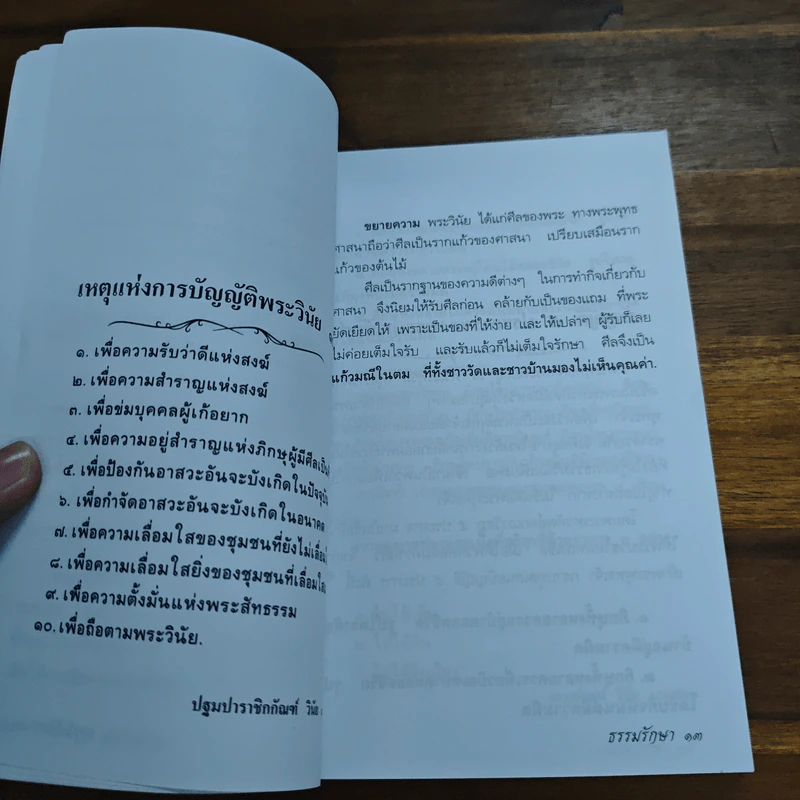 เหตุแห่งการบัญญัติพระวินัย
๑. เพื่อความรับว่าดีแห่งสงฆ์
๒. เพื่อความสำราญแห่งสงฆ์
๓. เพื่อข่มบุคคลผู้เก้อยาก
๔. เพื่อความอยู่สำราญแห่งภิกษุผู้มีศีลเป็น
๕. เพื่อป้องกันอาสวะอันจะบังเกิดในปัจจุบัน
๖. เพื่อกำจัดอาสวะอันจะบังเกิดในอนาคต
๗. เพื่อความเลื่อมใสของชุมชนที่ยังไม่เลื่อม
๘. เพื่อความเลื่อมใสยิ่งของชุมชนที่เลื่อมใส
๙. เพื่อความตั้งมั่นแห่งพระสัทธรรม
๑๐. เพื่อถือตามพระวินัย.
ปฐมปาราชิกกัณฑ์ วินัย
ขยายความ พระวินัย ได้แก่ศีลของพระ ทางพระพุทธ
ศาสนาถือว่าศีลเป็นรากแก้วของศาสนา เปรียบเสมือนราก
แก้วของต้นไม้
ศีลเป็นรากฐานของความดีต่างๆ ในการทำกิจเกี่ยวกับ
ศาสนา จึงนิยมให้รับศีลก่อน คล้ายกับเป็นของแถม ที่พระ
ยัดเยียดให้ เพราะเป็นของที่ให้ง่าย และให้เปล่าๆ ผู้รับก็เลย
ไม่ค่อยเต็มใจรับ และรับแล้วก็ไม่เต็มใจรักษา ศีลจึงเป็น
แก้วมณีในตม ที่ทั้งชาววัดและชาวบ้านมองไม่เห็นคุณค่า.
ธรรมรักษา ๑๓